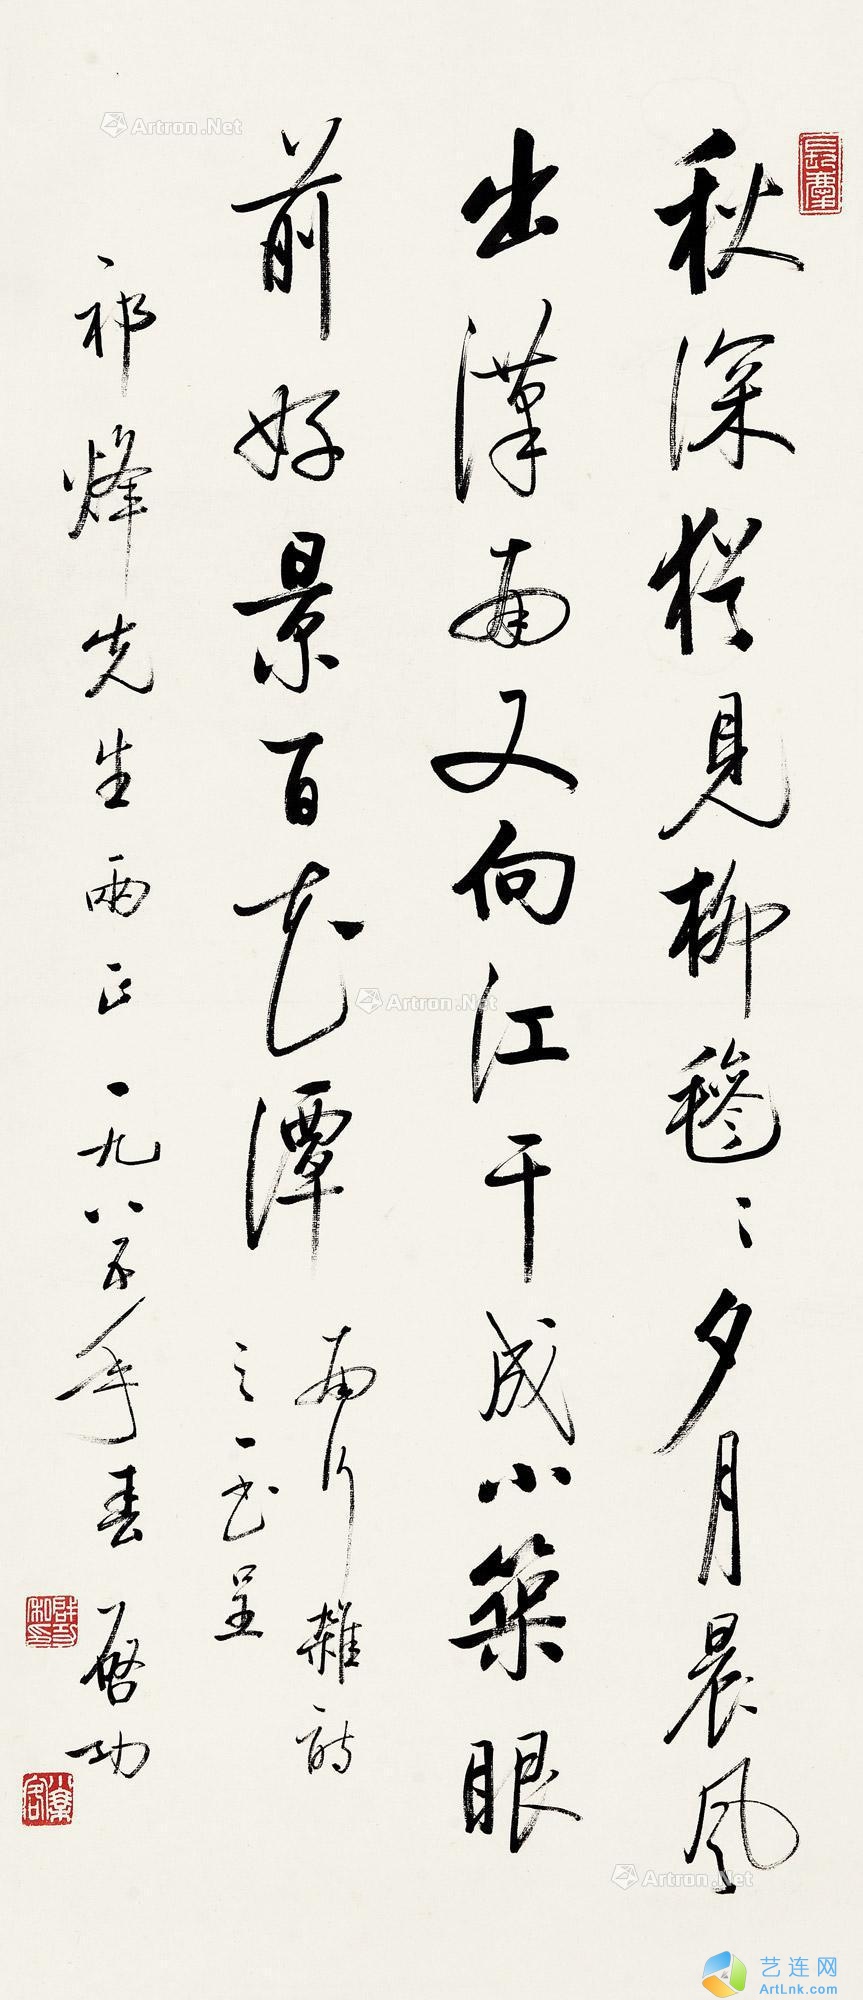 秋深猶見柳毿〻夕月晨風
出漢南又向江干成小築眼
前好景百花潭
南行雜詩
之一書呈
祁烽先生兩正一九八五年春
啓功
Artron.Net
Artron.Net
Artron.Net
艺连网
ArtLnk.com